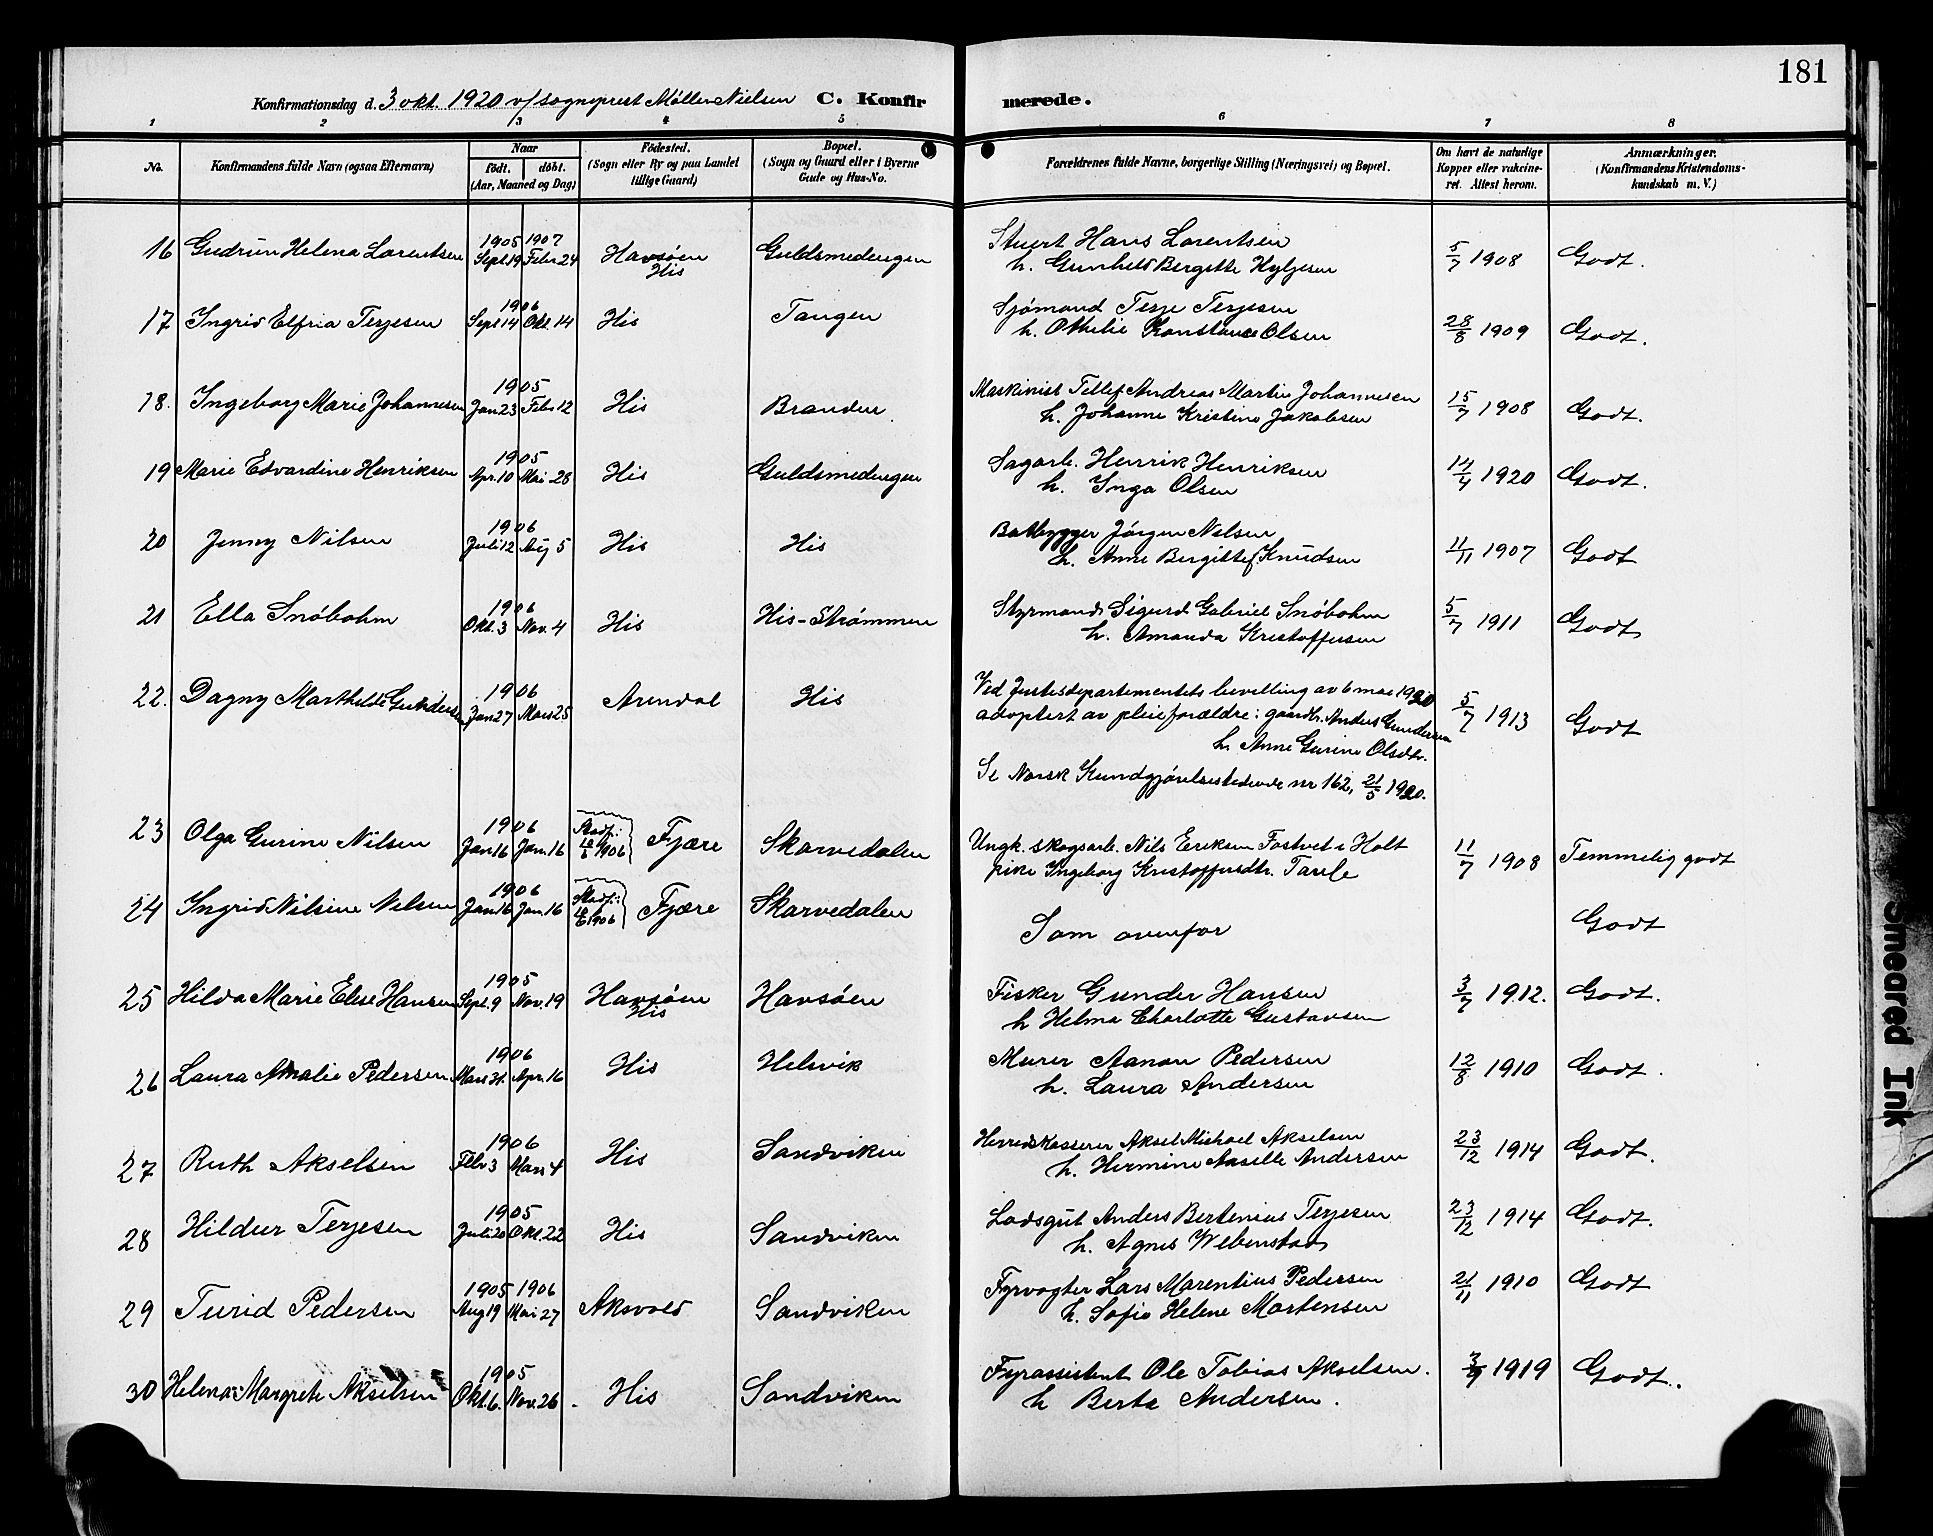 181
Konfirmationsdag d. 3 okt. 1920 v/ sogneprest Møller Nielsen C. Konfirmerede.
1 2 3 4 5 6 7 8
No. Konfirmandens fulde Navn (ogsaa Efternavn) Naar født. døbt. (Aar, Maaned og Dag) Fødested. (Sogn eller By og paa Landet tillige Gaard) Bopæl. (Sogn og Gaard eller i Byerne Gade og Hus-No. Forældrenes fulde Navne, borgerlige Stilling (Næringsvei) og Bopæl. Om havt de naturlige Kopper eller vakcineret. Attest herom. Anmærkninger. (Konfirmandens Kristendomskundskab m. V.)
16 Gudrun Helena Lorentsen 1905 Sept. 19 1907 Febr. 24 Havsøen His Guldsmedengen Stuert Hans Lorentsen
h. Gunhild Bergitte Hyljesen 5/7 1908 Godt.
17 Ingrid Elfria Terjesen 1906 Sept 14 Okt. 14 His Tangen Sjømand Terje Terjesen
h. Othelie Konstance Olsen 28/8 1909 Godt.
18. Ingeborg Marie Johannesen 1905 Jan 23 Febr 12 His Branden Maskinist Tellef Andreas Martin Johannesen
h. Johanne Kristine Jakobsen 15/7 1908 Godt.
19 Marie Edvardine Henriksen 1905 Apr. 10 Mai 28 His Guldsmedengen Sagarb. Henrik Henriksen
h. Inga Olsen 14/4 1920 Godt.
20 Jenny Nilsen 1906 Juli 12 Aug 5 His His Baatbygger Jørgen Nilsen
h. Anne Bergitte f. Knudsen 11/11 1907 Godt
21 Ella Snöbohm 1906 Okt. 3 Nov. 4 His His-Strømmen Styrmand Sigurd Gabriel Snöbohm
h. Amanda Kristoffersen 5/7 1911 Godt
22. Dagny Marthilde Gundersen 1906 Jan 27 Mars 25 Arendal His Ved Justisdepartementets bevilling av 6 mai 1920
adoptert av pleieforældre: gaardbr. Anders Gundersen
h. Anne Gurine Olsdtr.
Se Norsk Kundgjørelsestidende nr 162, 21/5 1920. 5/7 1913 Godt
23 Olga Gurine Nilsen 1906 Jan 16 Jan. 16 Stadf.: 10/6 1906 Fjære Skarvedalen Ungk. skogsarb. Nils Eriksen Fostvet i Holt
pike Ingeborg Kristoffersdtr. 11/7 1908 Temmelig godt
24 Ingrid Nilsine Nilsen 1906 Jan 16 Jan. 16 Stadf.: 10/6 1906 Fjære Skarvedalen Som ovenfor Godt
25 Hilda Marie Elise Hansen 1905 Sept. 9 Nov. 19 Havsøen His Havsøen Fisker Gunder Hansen
h Helma Charlotte Gustavsen 3/7 1912. Godt.
26 Laura Amalie Pedersen 1906 Mars 21. Apr. 16 His Helsvik Murer Aanon Pedersen
h. Laura Andersen 12/8 1910 Godt.
27 Ruth Akselsen 1906 Febr 3 Mars 4 His Sandviken Herredskasserer Aksel Michael Akselsen
h. Hermine Andersen 23/12 1914 Godt.
28 Hildur Terjesen 1905 Juli 20 Okt. 22 His Sandviken Lodsgut Anders Bertenius Terjesen
h. Agnes Webenstad 23/12 1914 Godt.
29 Turid Pedersen 1905 Aug 19 1906 Mai 27 Aksvold Sandviken Fyrvogter Lars Marentius Pedersen
h. Sofie Helene Mortensen 21/11 1910 Godt
30 Helena Margrete Akselsen 1905 Okt. 6. Nov. 26 His Sandviken Fyrassistent Ole Tobias Akselsen.
h Berta Andersen. 3/9 1919 Godt.
Smeared Ink